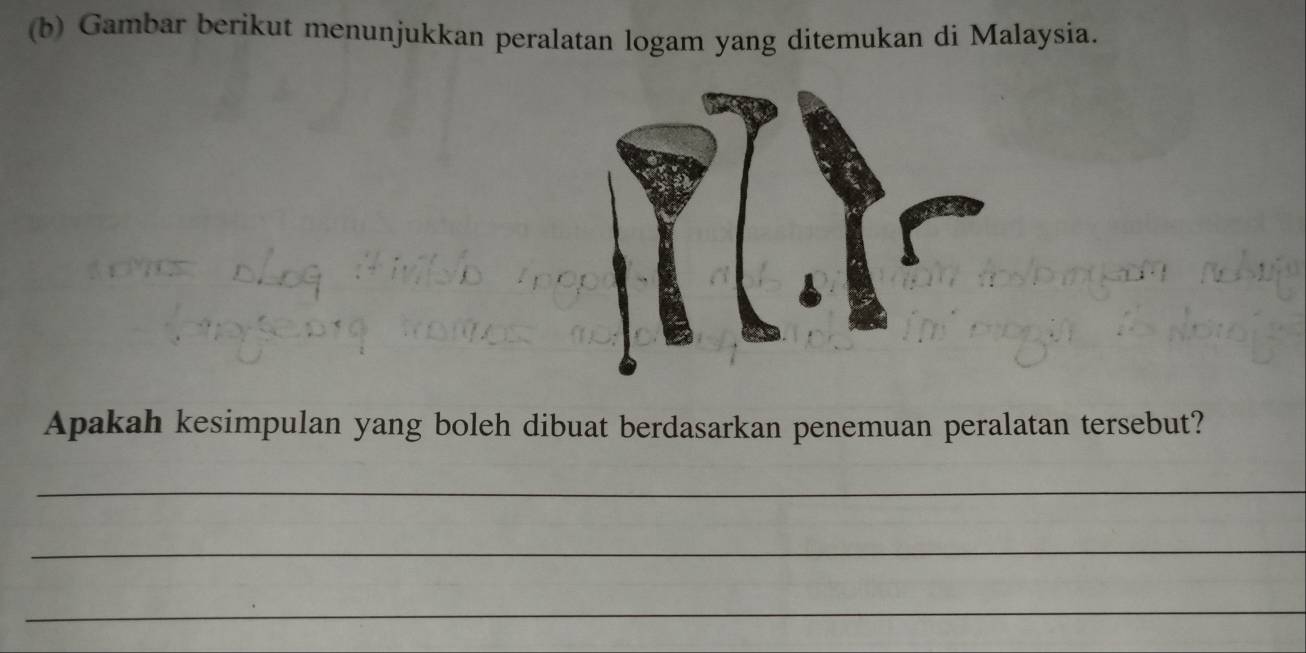 (b) Gambar berikut menunjukkan peralatan logam yang ditemukan di Malaysia.
Apakah kesimpulan yang boleh dibuat berdasarkan penemuan peralatan tersebut?